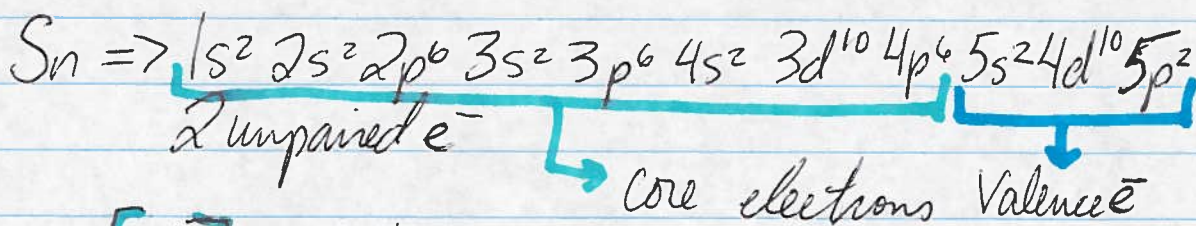 Sn => 1s² 2s² 2p⁶ 3s² 3p⁶ 4s² 3d¹⁰ 4p⁶ 5s² 4d¹⁰ 5p²
2 unpaired e⁻
Core electrons Valence e⁻